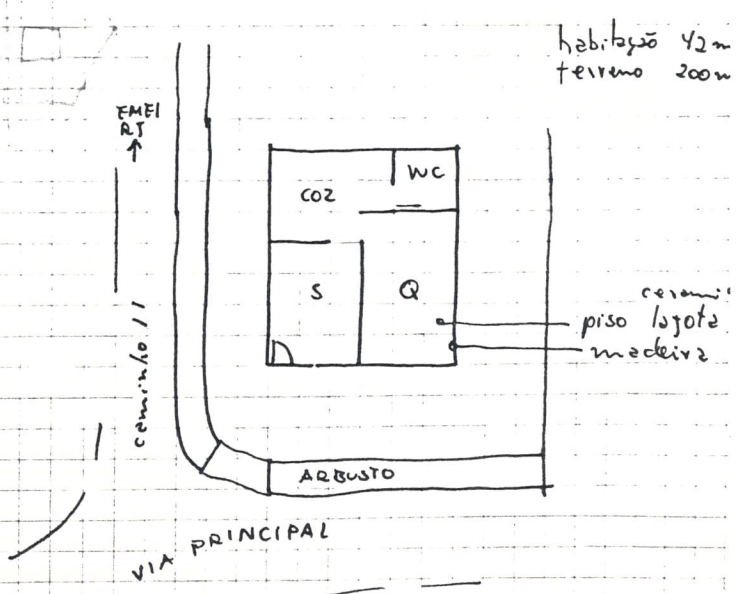 habitação 42m
terreno 200m
EMEI
RJ
WC
COZ
S
Q
cerami
piso lajota
madeira
caminho 11
ARBUSTO
VIA PRINCIPAL